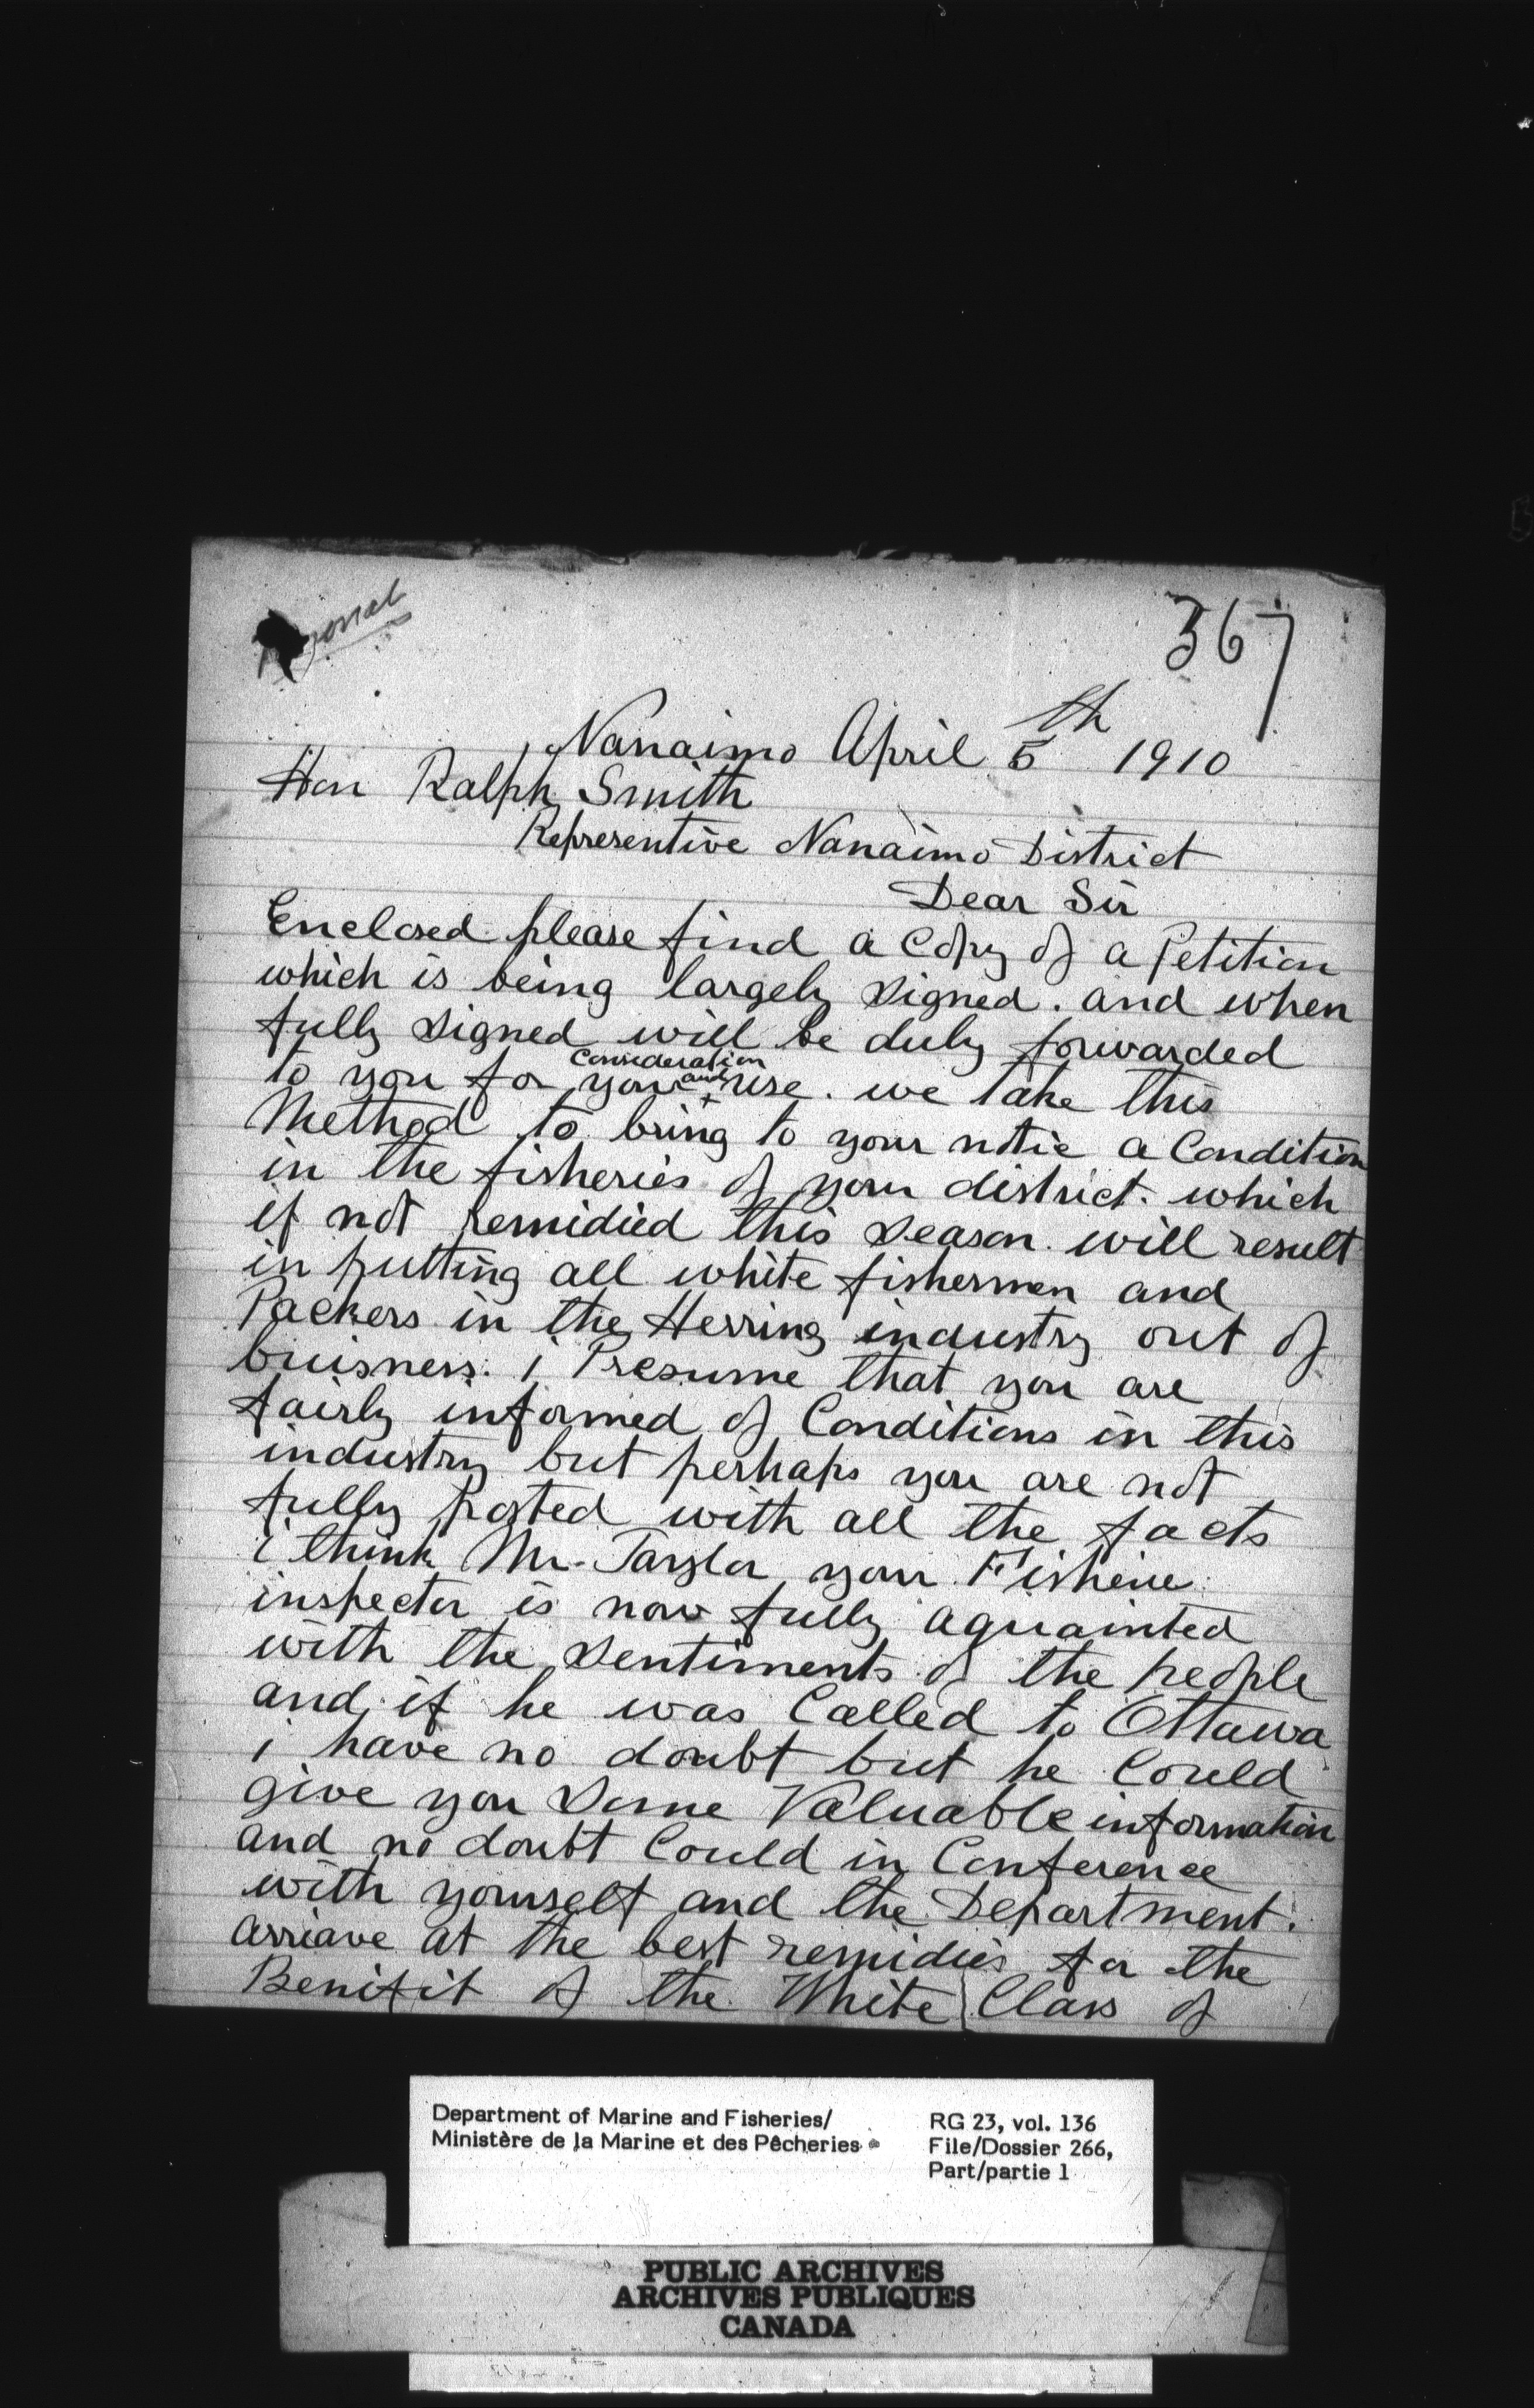 Personal
367
Nanaimo April 5th 1910
Hon Ralph Smith
Representive Nanaimo District
Dear Sir
Enclosed please find a Copy of a Petition
which is being largely signed. and when
fully signed will be duly forwarded
to you for your Consideration and use. we take this
Method to bring to your notic a Condition
in the fisheries of your district. which
if not remidied this season. will result
in putting all white fishermen and
Packers in the Herring industry out of
buisness. i Presume that you are
fairly informed of Conditions in this
industry but perhaps you are not
fully posted with all the facts
i think Mr. Taylor your Fisherie
inspector is now fully aquainted
with the sentiments of the people
and if he was Called to Ottawa
i have no doubt but he Could
give you some Valuable information
and no doubt Could in Conference
with yourself and the Department.
arriave at the best remidies for the
Benifit of the White Class of
Department of Marine and Fisheries/
Ministère de la Marine et des Pêcheries
RG 23, vol. 136
File/Dossier 266,
Part/partie 1
PUBLIC ARCHIVES
ARCHIVES PUBLIQUES
CANADA